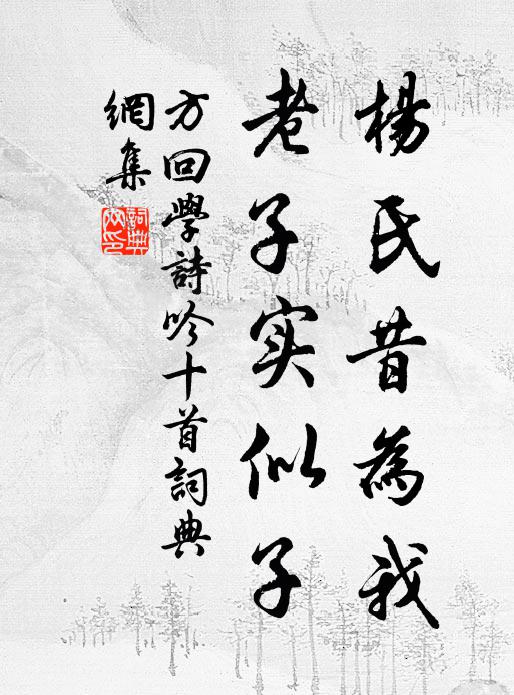 楊氏昔為我
老子实似子
方回學詩吟十首詞典
網集
詞典
网印